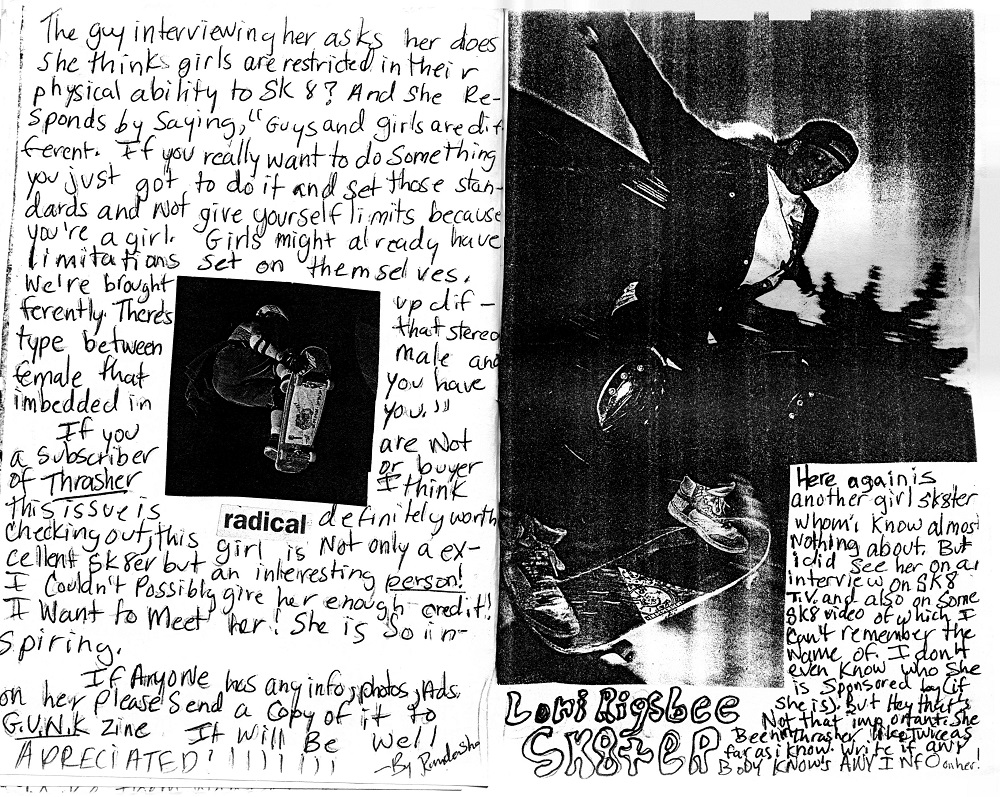 The guy interviewing her asks her does
she thinks girls are restricted in their
physical ability to SK 8? And She Re-
sponds by Saying, "Guys and girls are dif
ferent. If you really want to do Something
you just got to do it and set those stan-
dards and Not give yourself limits because
you're a girl. Girls might already have
limitations set on themselves.
We're brought up dif-
ferently. There's that stereo
type between male and
female that you have
imbedded in you."
If you are Not
a Subscriber or buyer
of Thrasher I think
this issue is definitely worth
radical
checking out, this girl is Not only a ex-
cellent Sk8er but an interesting person!
I Couldn't Possibly give her enough credit!
I Want to Meet her! She is So in-
spiring.
If Anyone has any info, photos, Ads,
on her Please Send a Copy of it to
G.U.N.K zine It Will Be Well
APRECIATED! ! ! ! ! ! !
-By Ramdasha
Here again is
another girl sk8ter
whom i Know almost
Nothing about. But
I did See her on an
interview on SK8
T.V. and also on some
SK8 video of which I
Can't remember the
Name of. I don't
even Know who She
is Sponsored by (if
she is). But Hey that's
Not that important. She
Been in Thrasher like Twice as
far as i know. Write if any
Body KNOW'S ANY INFO on her!
Lori Rigsbee
SK8teR